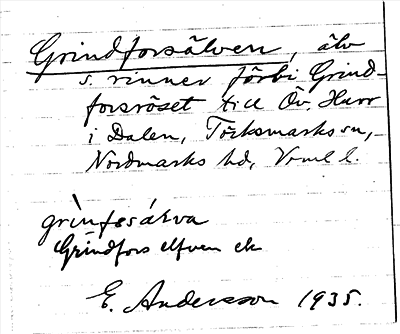 Grindforsälven, älv
s. rinner förbi Grind-
forsröset till Öv. Hurr
i Dalen, Töcksmarks sn,
Nordmarks hd, Vrml l.
grinfesälva
Grindfors elfven ek
E. Andersson 1935.